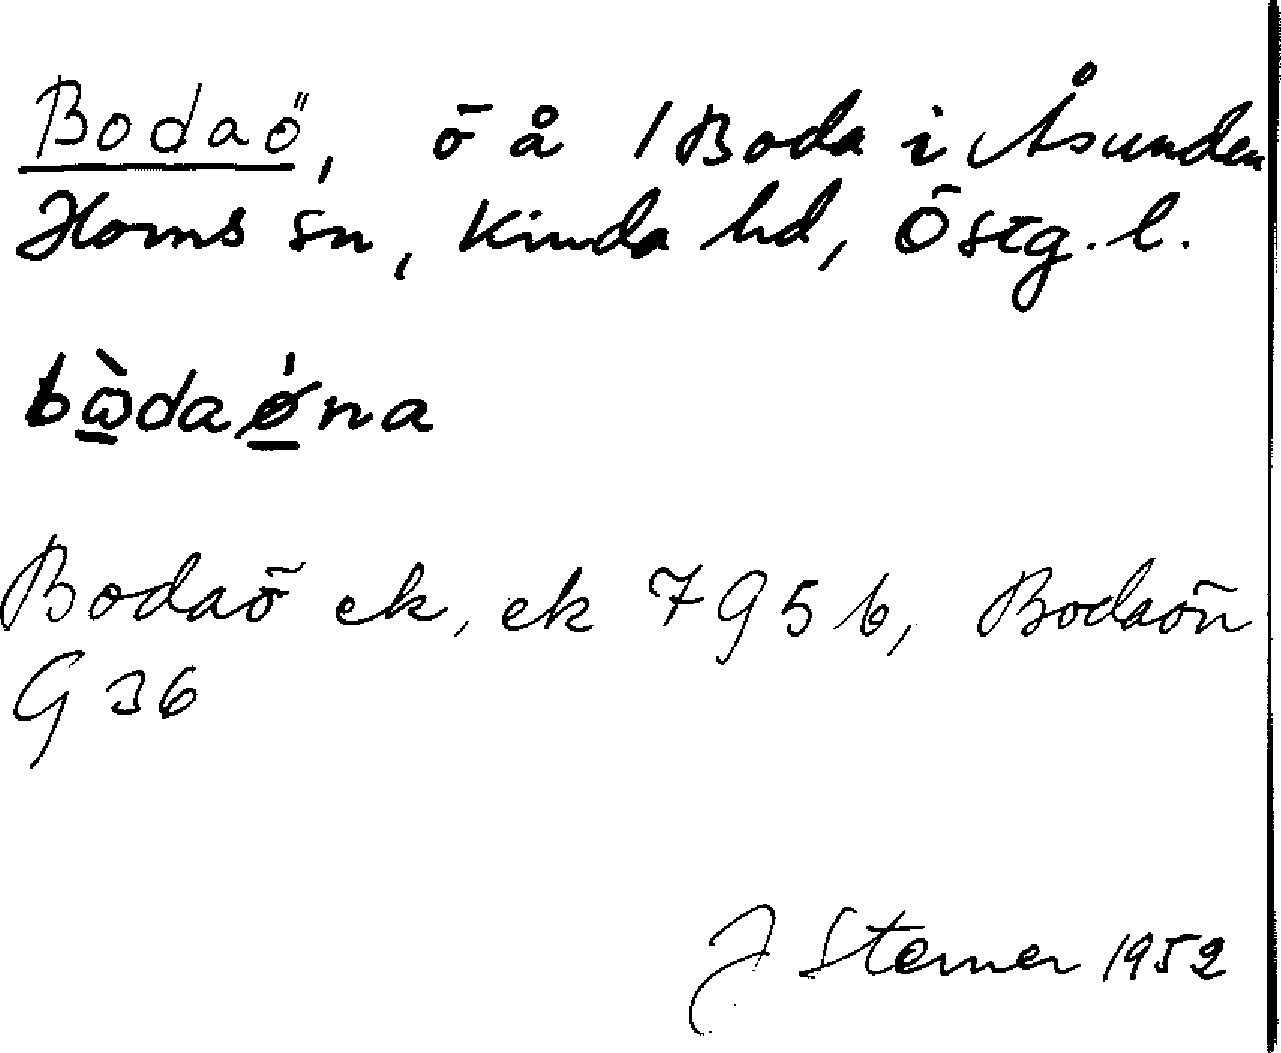 Bodaö, ö å 1 Boda i Åsunden
Horns sn, Kinda hd, Östg. l.
bὼdaǿna
Bodaö ek, ek 7956, Bodaön
G 36
J Sterner 1952